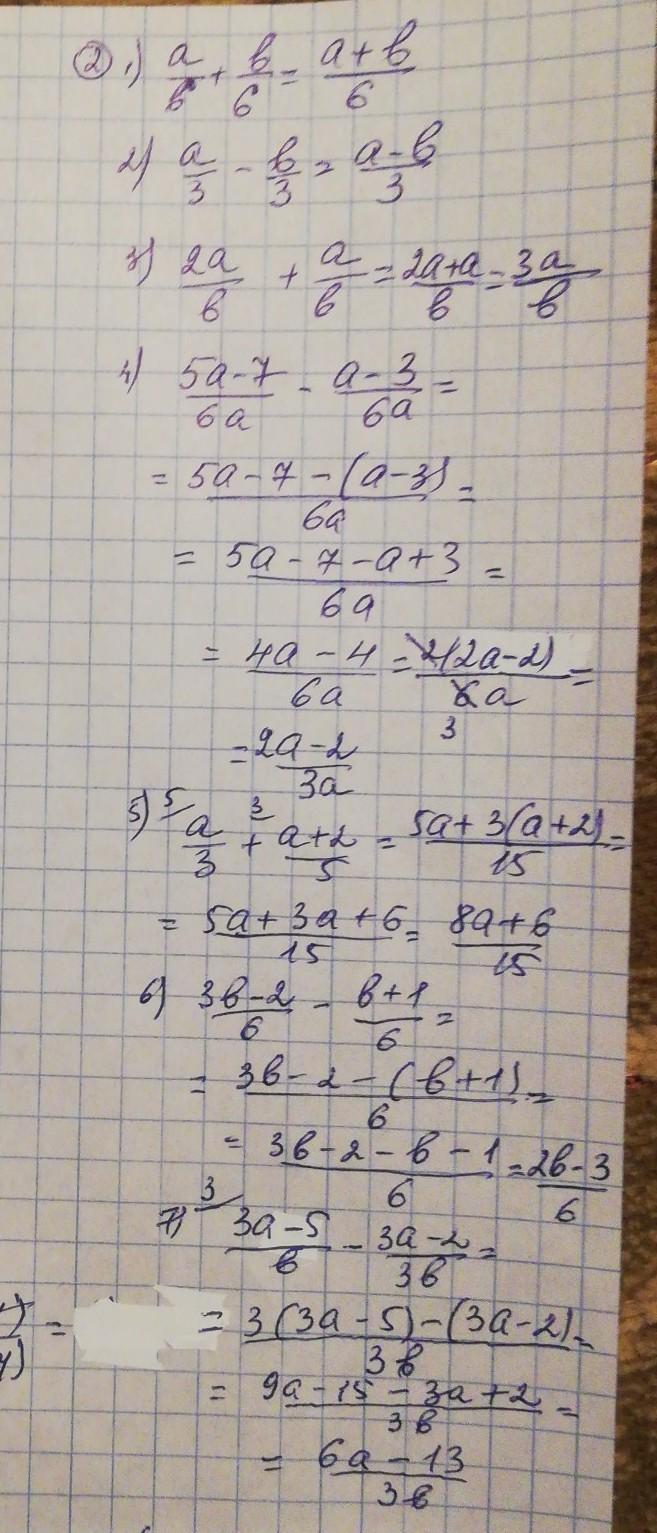 ② 1) a/6 + b/6 = a+b/6
2) a/3 - b/3 = a-b/3
3) 2a/b + a/b = 2a+a/b = 3a/b
4) 5a-7/6a - a-3/6a =
= 5a-7-(a-3)/6a =
= 5a-7-a+3/6a =
= 4a-4/6a = 2(2a-2)/6a =
3
= 2a-2/3a
5) 5/ a/3 + 3/ a+2/5 = 5a+3(a+2)/15 =
= 5a+3a+6/15 = 8a+6/15
6) 3b-2/6 - b+1/6 =
= 3b-2-(b+1)/6 =
= 3b-2-b-1/6 = 2b-3/6
7) 3/ 3a-5/b - 3a-2/3b =
= = 3(3a-5)-(3a-2)/3b =
= 9a-15-3a+2/3b =
= 6a-13/3b